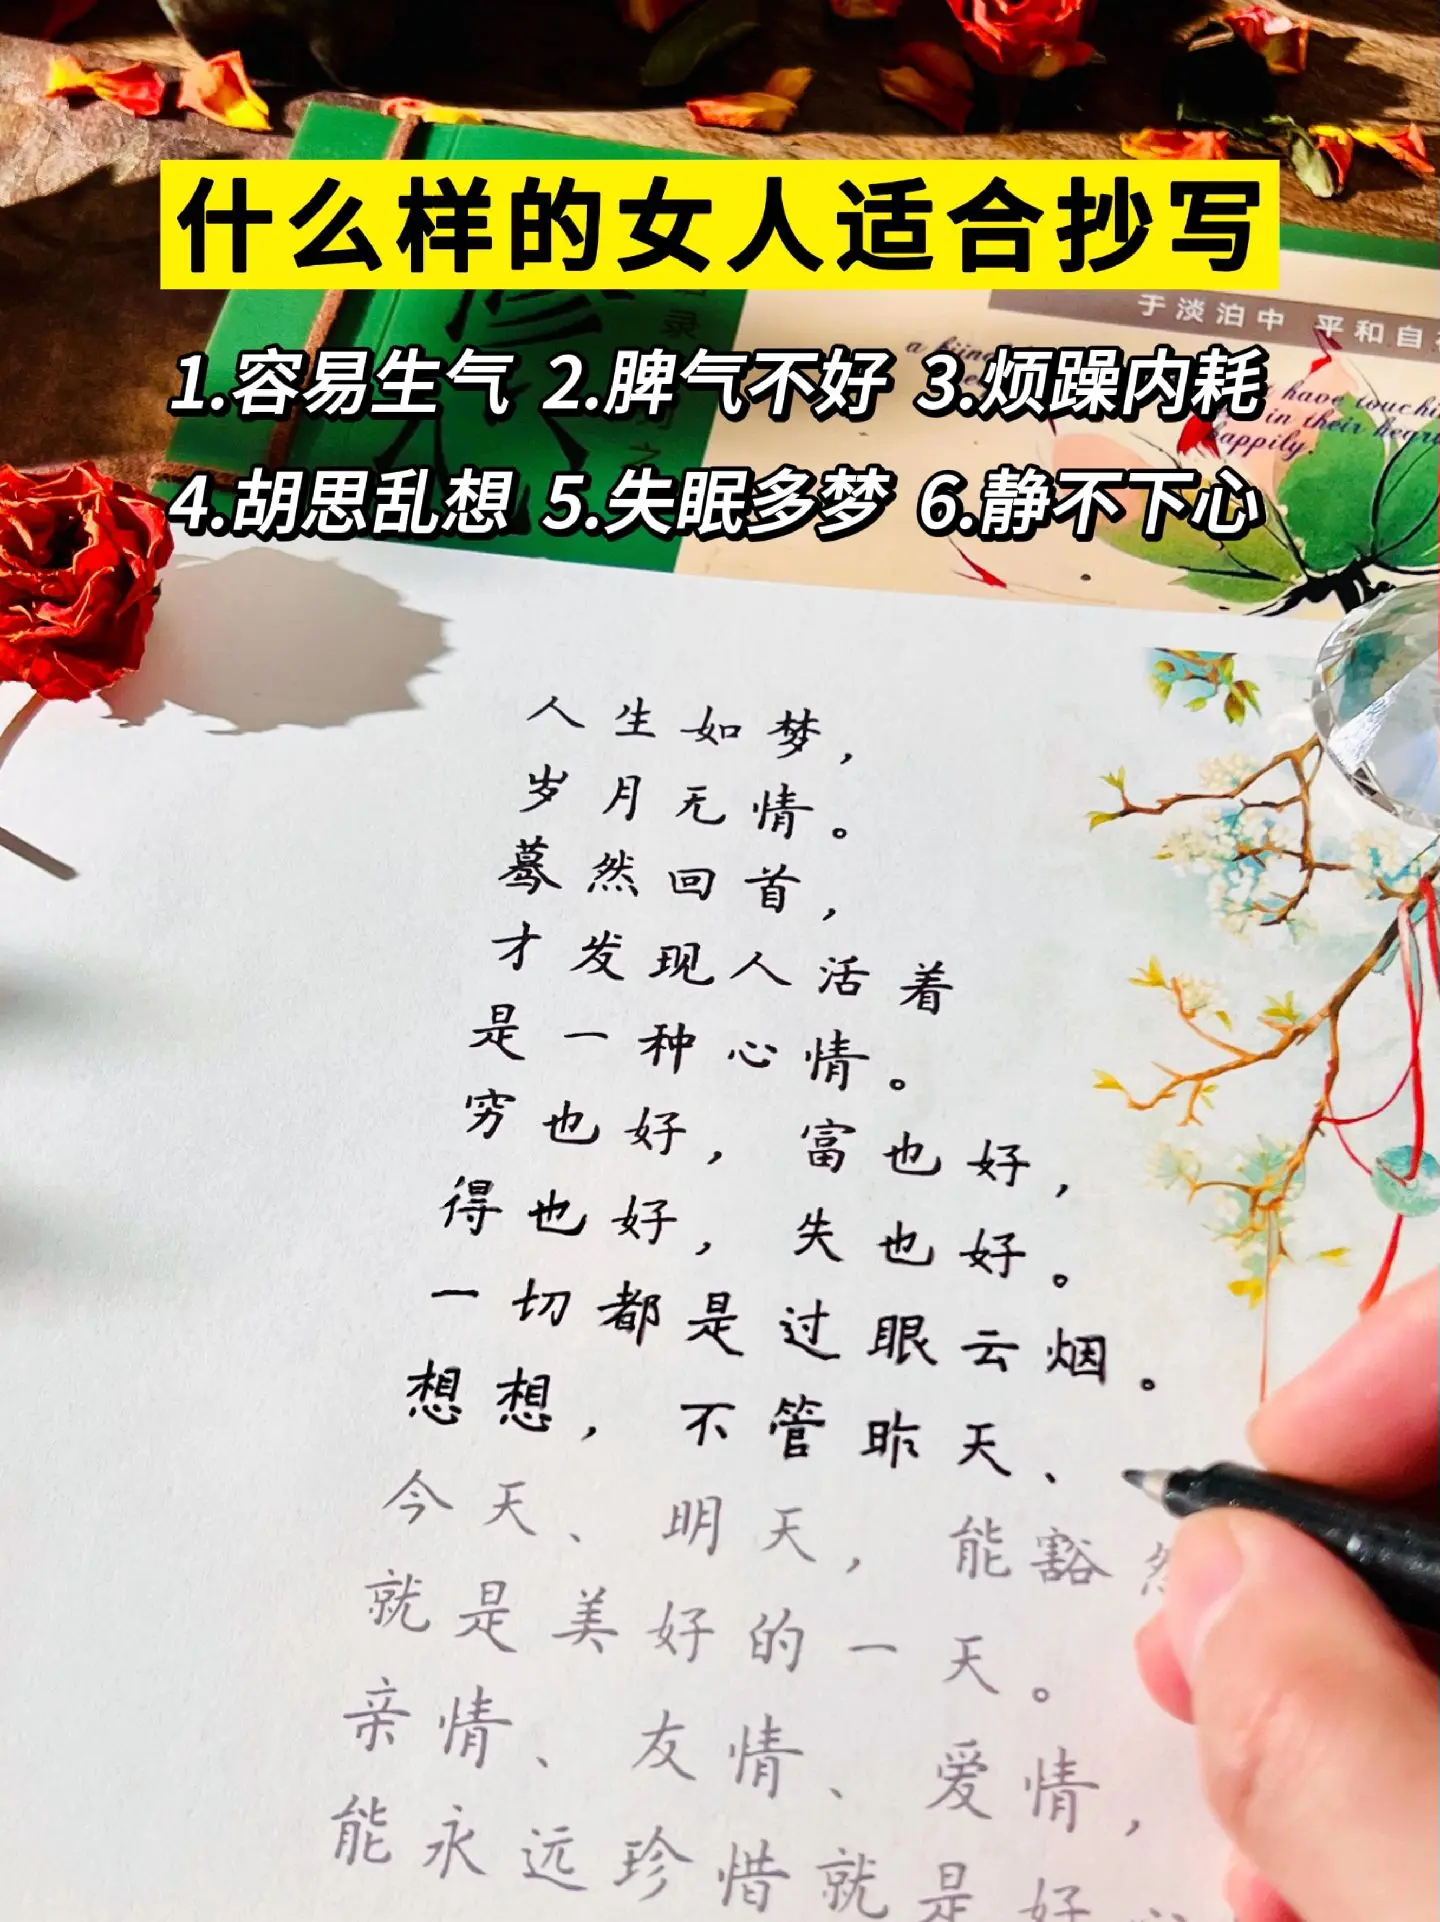 什么样的女人适合抄写
1.容易生气 2.脾气不好 3.烦躁内耗
4.胡思乱想 5.失眠多梦 6.静不下心
于淡泊中 平和自
录
之
a kind
have touchin
in their hear
happily.
人生如梦，
岁月无情。
蓦然回首，
才发现人活着
是一种心情。
穷也好，富也好，
得也好，失也好。
一切都是过眼云烟。
想想，不管昨天、
今天、明天，能豁
就是美好的一天。
亲情、友情、爱情，
能永远珍惜就是好